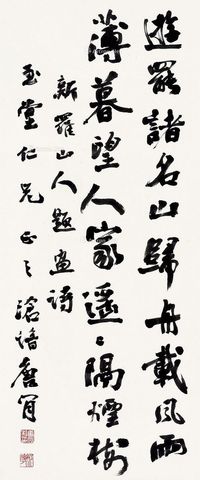 遊罷諸名山歸舟載風雨
薄暮望人家遥々隔煙樹
新羅山人題畫詩
玉堂仁兄正之 滄語詹冐